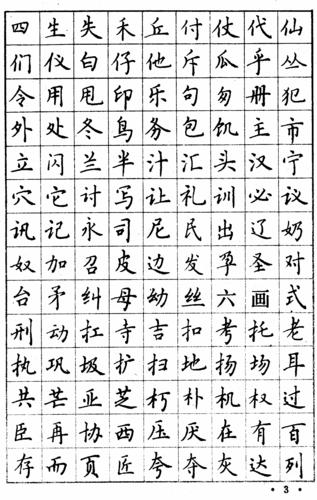 四生失禾丘付仗代仙
们仪白仔他斥瓜乎丛
令用甩印乐句匆册犯
外处冬鸟务包饥主市
立闪兰半汁汇头汉宁
穴它讨写让礼训必议
讯记永司尼民出辽奶
奴加召皮边发孕圣对
台矛纠母幼丝六画式
刑动扛寺吉扣考托老
执巩圾扩扫地扬场耳
共芒亚芝朽朴机权过
臣再协西压厌在有百
存而页匠夸夺灰达列
• 3 •